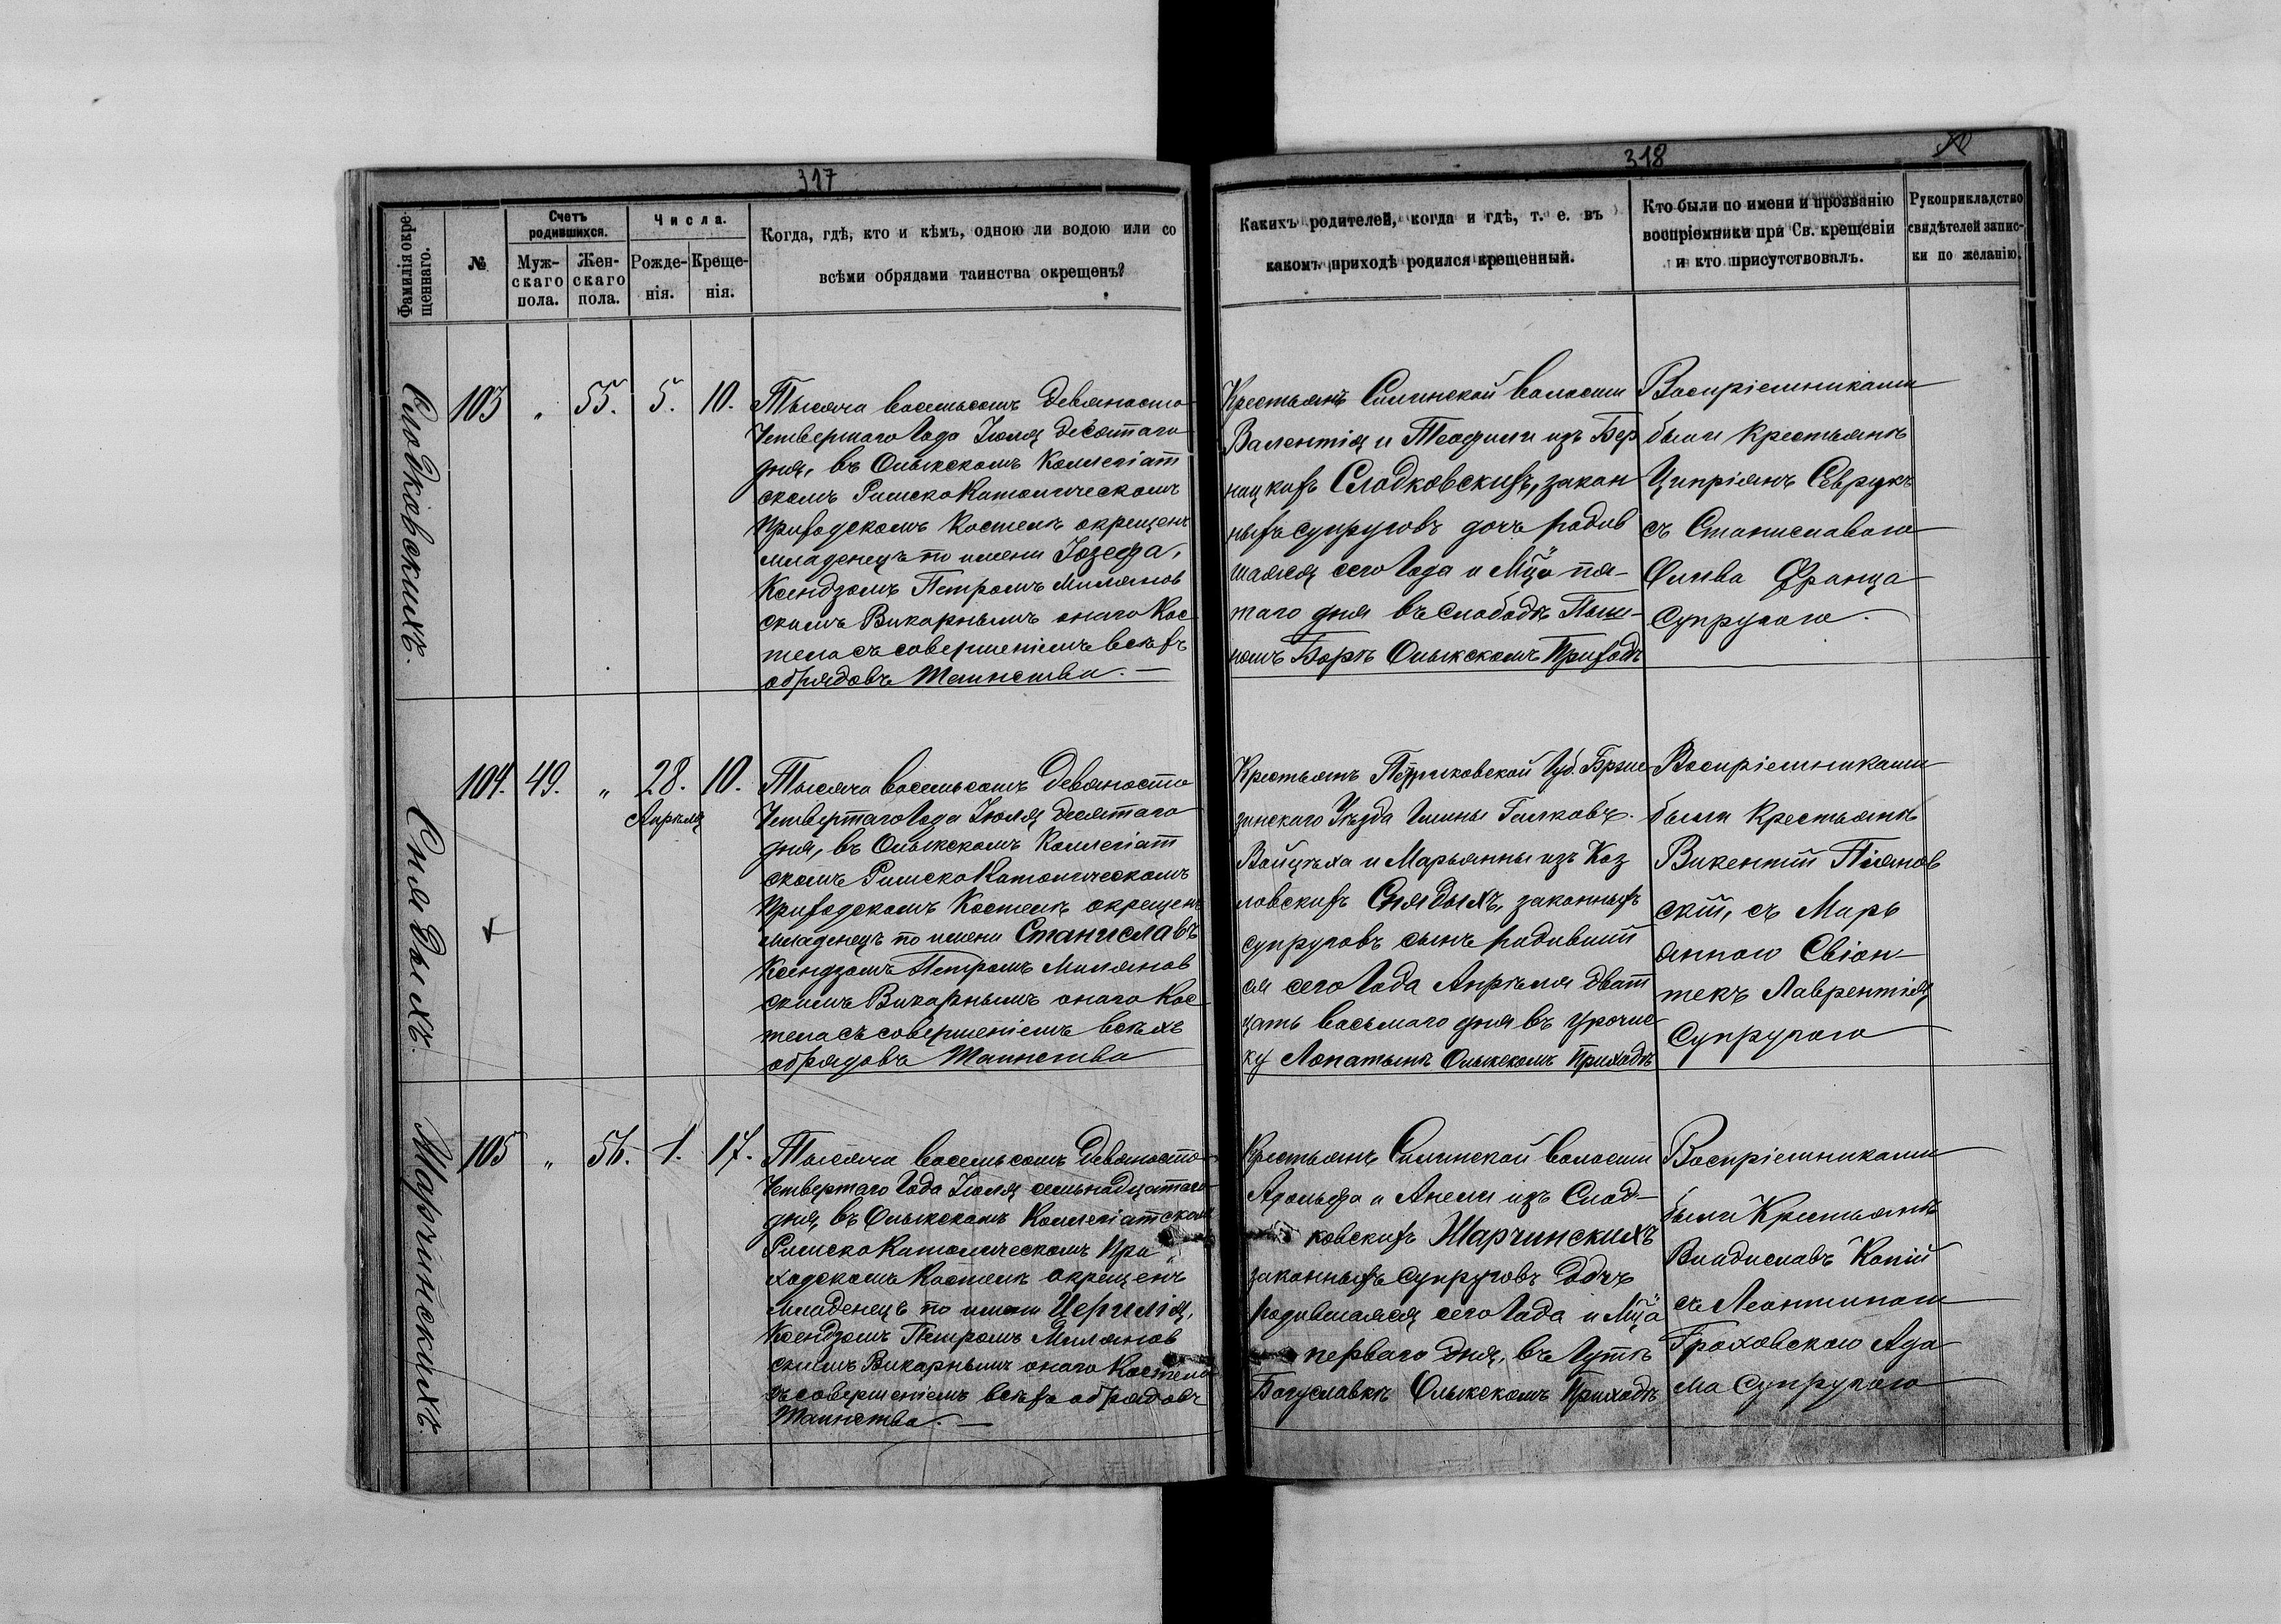 317
Фамилія окре-
щеннаго.
№
Счетъ
родившихся.
Муж-
скаго
пола.
Жен-
скаго
пола.
Числа.
Рожде-
нія.
Креще-
нія.
Когда, гдѣ, кто и кѣмъ, одною ли водою или со
всѣми обрядами таинства окрещенъ?
Слодковскихъ.
103
"
55.
5.
10.
Тысяча восемьсотъ девяносто
Четвертаго Года Іюля десятаго
дня, въ Олыкскомъ Коллегіат
скомъ Римско Католическомъ
Приходскомъ Костелѣ окрещенъ
младенецъ по имени Іозефа,
Ксендзомъ Петромъ Милянов
скимъ Викарнымъ онаго Кос
тела съ совершеніемъ всѣхъ
обрядовъ Таинства. —
Снядыхъ.
104.
49.
"
28.
Апрѣля
10.
Тысяча восемьсотъ девяносто
Четвертаго Года Іюля десятаго
дня, въ Олыкскомъ Коллегіат
скомъ Римско Католическомъ
Приходскомъ Костелѣ окрещенъ
младенецъ по имени Станиславъ
Ксендзомъ Петромъ Милянов
скимъ Викарнымъ онаго Кос
тела съ совершеніемъ всѣхъ
обрядовъ Таинства
Марчинскихъ.
105
"
56.
1.
17.
Тысяча восемьсотъ девяносто
Четвертаго Года Іюля семьнадцатаго
дня, въ Олыкскомъ Коллегіатском
Римско Католическомъ При
ходскомъ Костелѣ окрещенъ
младенецъ по имени
Ксендзомъ Петромъ Милянов
скимъ Викарнымъ онаго Костела
съ совершеніемъ всѣхъ обрядовъ
Таинства. —
318
Какихъ родителей, когда и гдѣ, т. е. въ
какомъ приходѣ родился крещенный.
Кто были по имени и прозванію
воспріемники при Св. крещеніи
и кто присутствовалъ.
Рукоприкладство
свидѣтелей запис-
ки по желанію.
Крестьянъ Силинской волости
Валентія и Теофили изъ Бер
нацкихъ Слодковскихъ, закон
ныхъ супруговъ дочь родив
шаяся сего Года и Мца пя-
таго дня въ слободѣ
Борѣ Олыкскомъ Приходѣ
Воспріемниками
были Крестьянѣ
Ципріянъ Севрукъ
съ Станиславою
Франца
Супругою.
Крестьянъ Петриковской Губ. Брзе
зинскаго Уѣзда Гмины Галковъ.
Войцѣха и Марьянны изъ Коз
ловскихъ Снядыхъ, законныхъ
супруговъ сынъ родивший
ся сего Года Апрѣля двати
цать восьмаго дня въ урочис
ку Лопатынѣ Олыкскомъ Приходѣ
Воспріемниками
были Крестьянѣ
Викентій Піянов
скій, съ Марь
янною Свіон-
текъ Лаврентія
Супругою
Крестьянъ Силинской волости
Адольфа и Анели изъ Слод-
ковскихъ Марчинскихъ
законныхъ супруговъ дочь
родившаяся сего Года и Мца
перваго дня, въ Гутѣ
Богуславкѣ Олыкскомъ Приходѣ
Воспріемниками
были Крестьянѣ
Владиславъ Копій
съ Леонтиною
Гроховскою Ада
ма Супругою